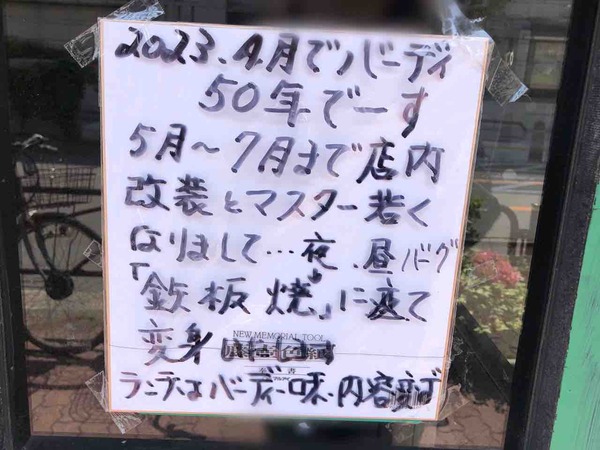 2023.4月でバーディ
50年でーす
5月〜7月まで店内
改装とマスター若く
なりまして…夜、昼
「鉄板焼」に
NEW MEMORIAL TOOL
変身
バーディー味・内容